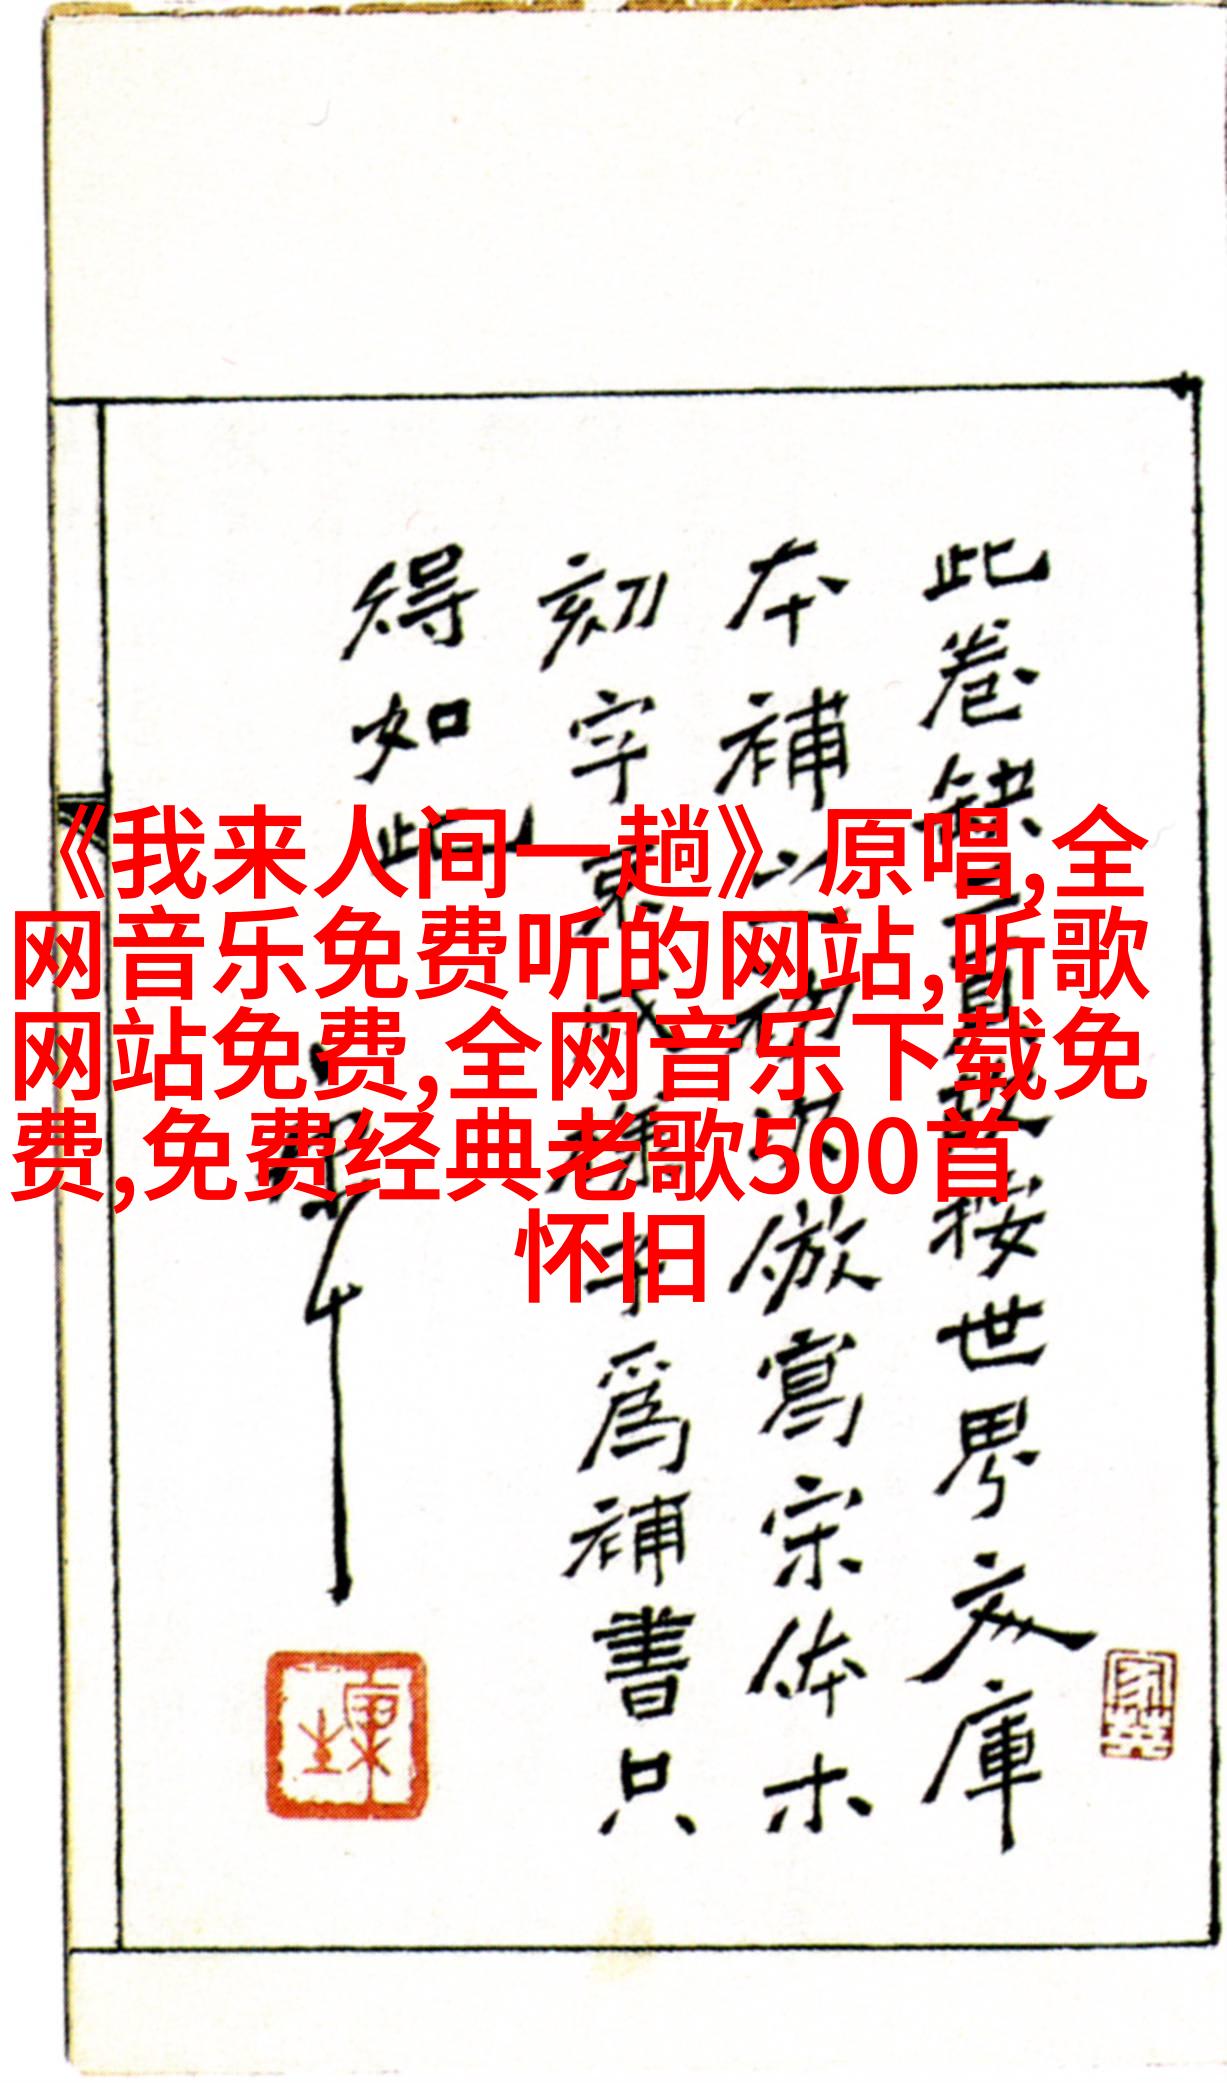 《我来人间一趟》原唱,全
网音乐免费听的网站,听歌
网站免费,全网音乐下载免
费,免费经典老歌500首
怀旧
此卷缺二頁故按世界文庫
本補以初次倣寫宋体木
刻字東成様子爲補書只
得如此